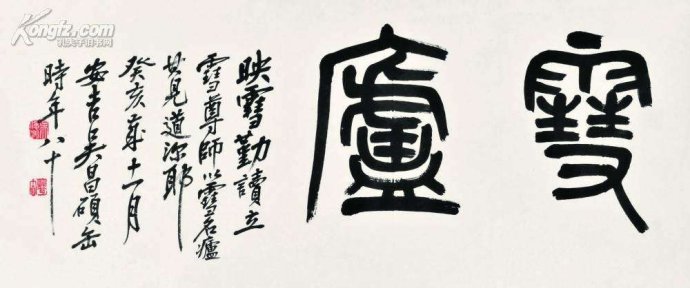 雪廬
映雪勤讀立
雪尊師以雪名廬
其見道深耶
癸亥歲十一月
安吉吳昌碩缶
時年八十
Kongfz.com
孔夫子旧书网